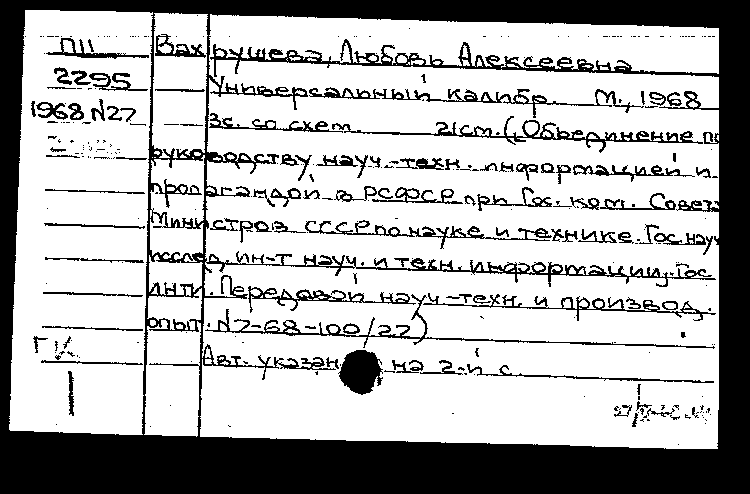 П11 Вахрушева, Любовь Алексеевна
2295 Универсальный калибр. М., 1968
1968 N27 3с. со схем. 21см. (Объединение по
руководству науч.-техн. информацией и
пропагандой в РСФСР при Гос. ком. Совета
Министров СССР по науке и технике. Гос. науч
исслед. ин-т науч. и техн. информации. Гос
инти. Передовой науч-техн. и производ.
опыт. N7-68-100/27)
ГК Авт. указан на 2-й с.